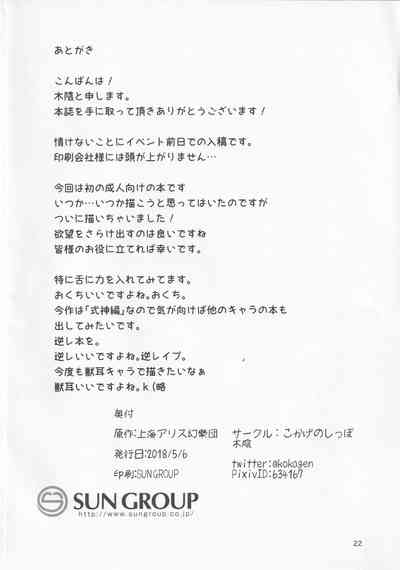 あとがき
こんばんは！
木陰と申します。
本誌を手に取って頂きありがとうございます！
情けないことにイベント前日での入稿です。
印刷会社様には頭が上がりません…
今回は初の成人向けの本です
いつか…いつか描こうと思ってはいたのですが
ついに描いちゃいました！
欲望をさらけ出すのは良いですね
皆様のお役に立てれば幸いです。
特に舌に力を入れてみてます。
おくちいいですよね。おくち。
今作は「式神編」なので気が向けば他のキャラの本も
出してみたいです。
逆レ本を。
逆レいいですよね。逆レイプ。
今度も獣耳キャラで描きたいなぁ
獣耳いいですよね。k(略
奥付
原作:上海アリス幻樂団
発行日:2018/5/6
印刷:SUN GROUP
サークル:こかげのしっぽ
木陰
twitter:@kokagen
PixivID:634167
SUN GROUP
http://www.sungroup.co.jp/
22